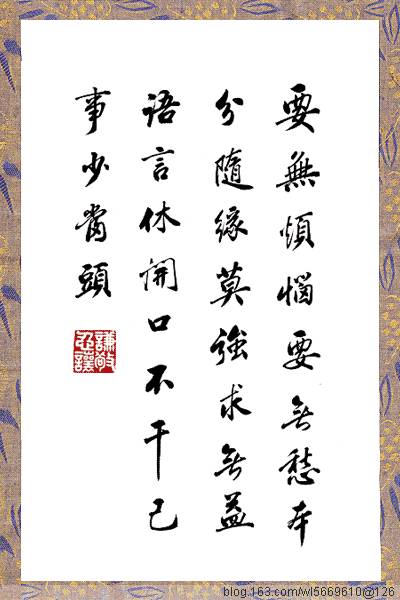 要無煩惱要無愁本
分隨緣莫強求無益
語言休開口不干己
事少當頭
謙敬
忍讓
blog.163.com/wl5669610@126